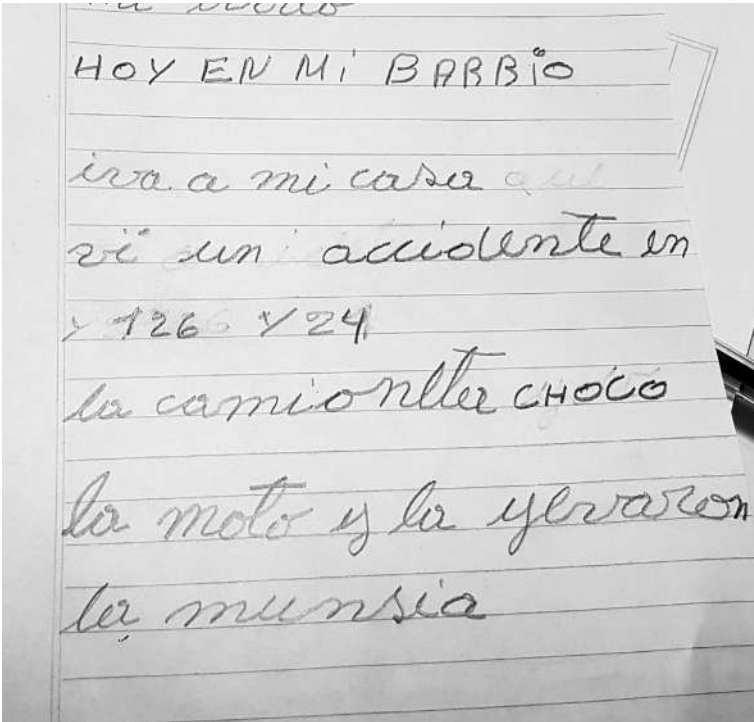 HOY EN Mi BARRiO
iva a mi casa
vi un accidente en
y 126 y 24
la camionetta CHOCO
la moto y la yevaron
la munsia